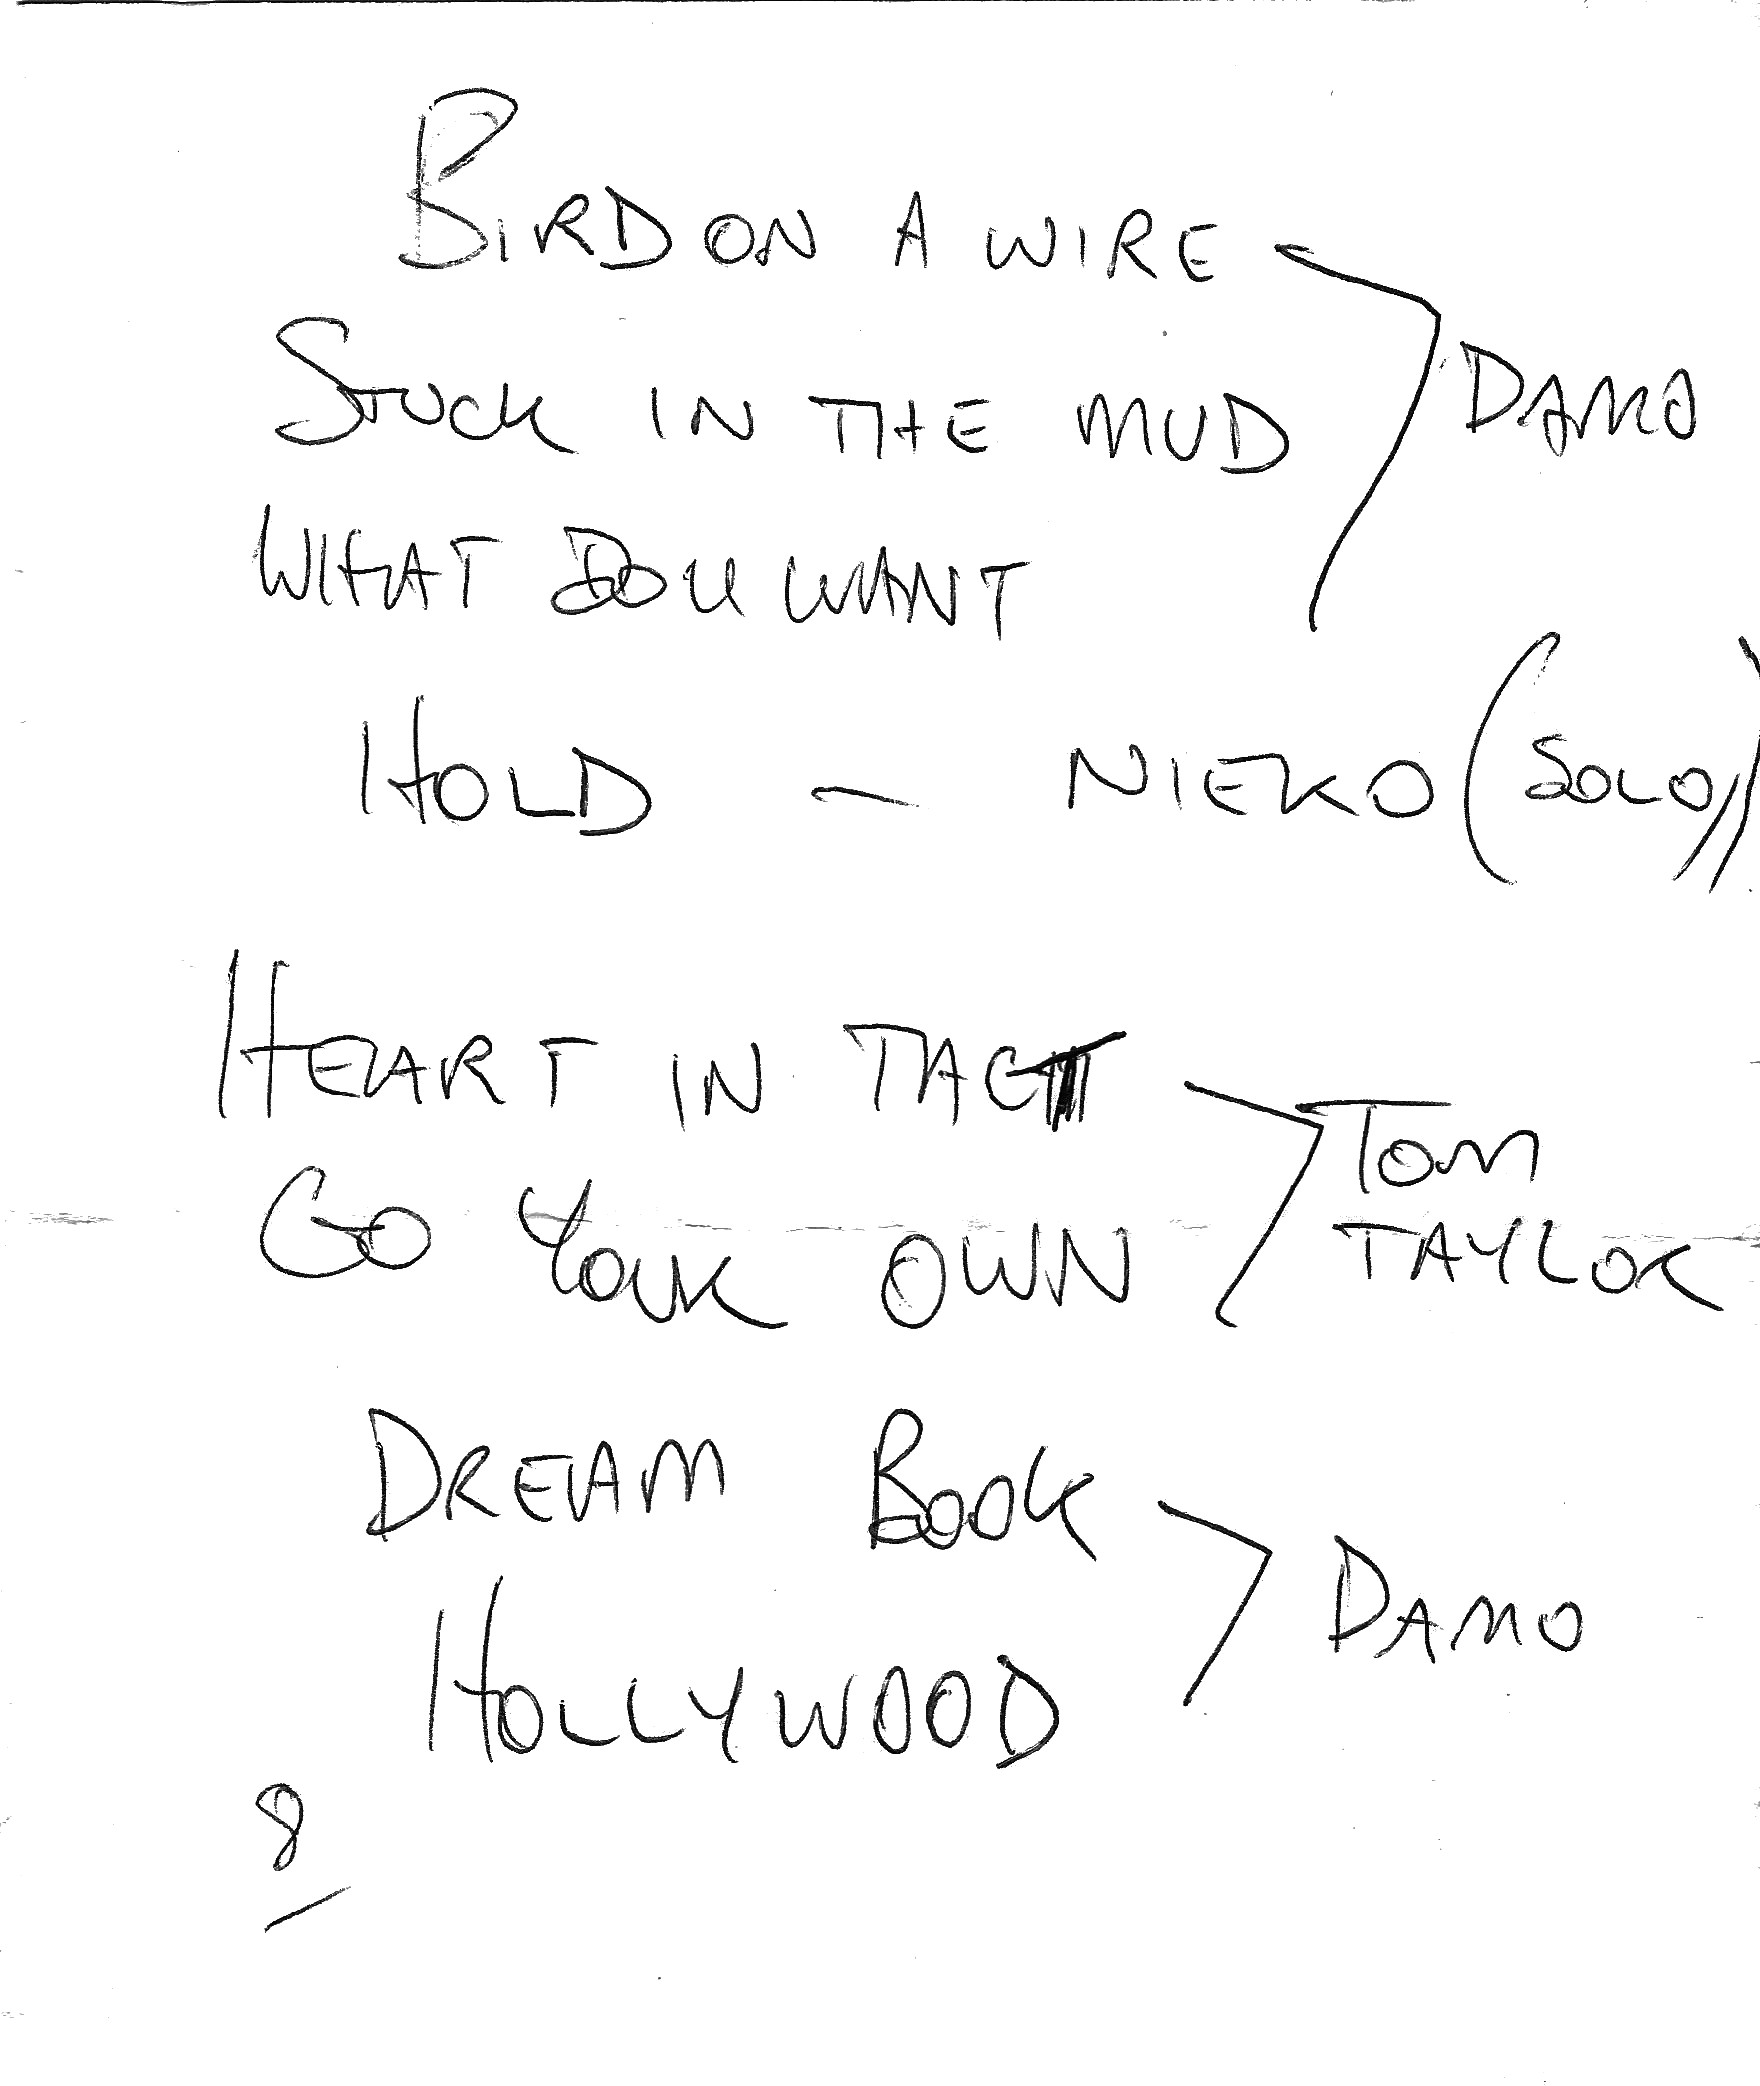 BIRD ON A WIRE
STUCK IN THE MUD
DAMO
WHAT DO U WANT
HOLD – NIEKO (SOLO)
HEART IN TACT
TOM
TAYLOR
GO YOUR OWN
DREAM BOOK
DAMO
HOLLYWOOD
8